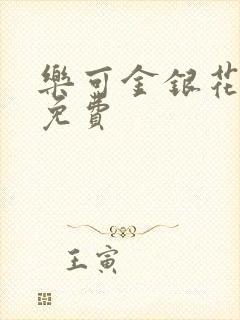 樂可金銀花
免費
王寅